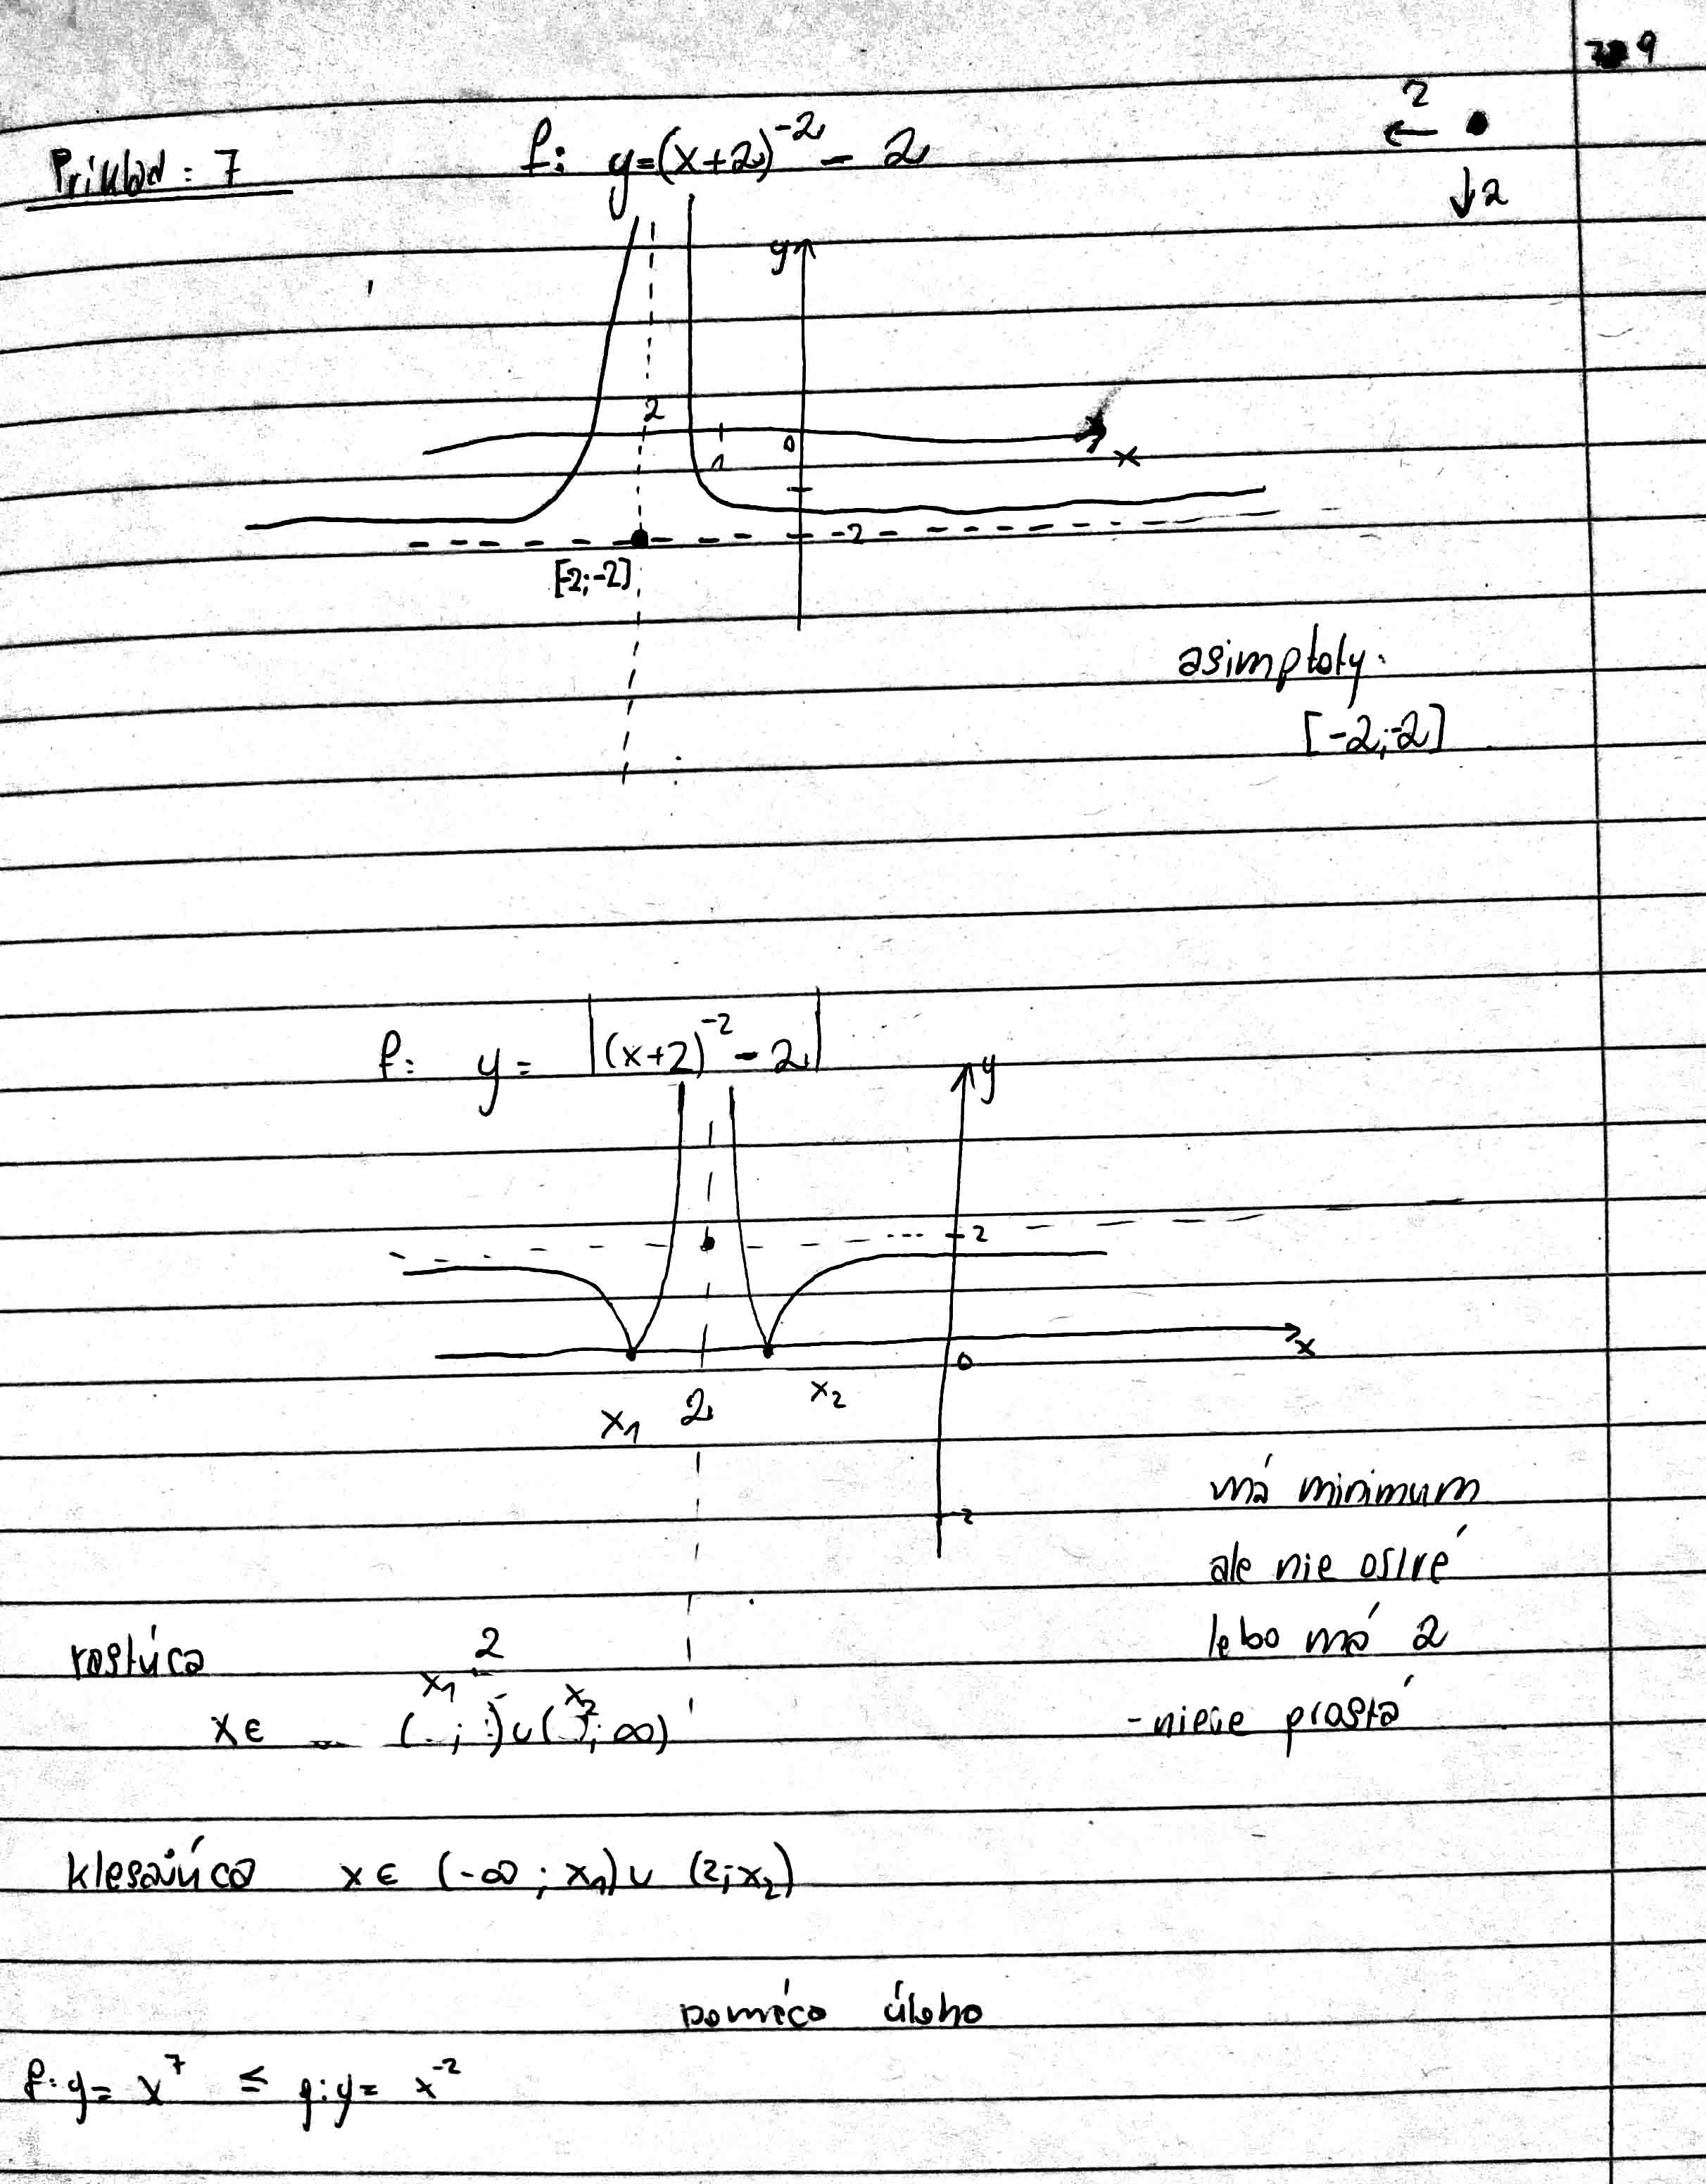 9
Príklad : 7 f: y=(x+2)⁻² - 2
2
←
↓2
y
2
1 0
x
-2
[-2;-2]
asimptoty.
[-2;-2]
f: y = |(x+2)⁻² - 2|
y
2
x
0
x₁ 2 x₂
-2
má minimum
ale nie ostré
lebo má 2
- nieje prostá
rastúca 2
x₁ x₂
x ∈ ( ; ) ∪ ( ; ∞)
klesajúca x ∈ (-∞ ; x₁) ∪ (2; x₂)
Domáca úloha
f: y = x⁷ ≤ g: y = x⁻²